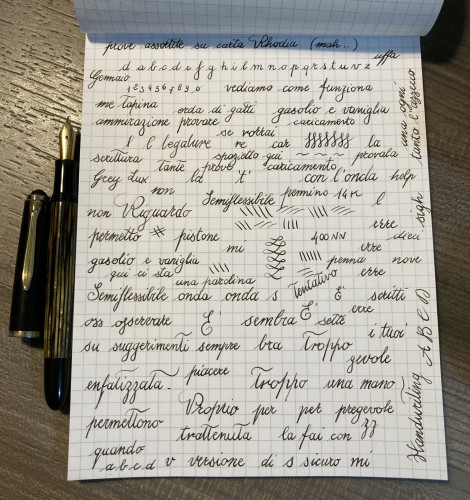 prove assortite su carta Rhodia (mah..)
uffa
d a b c d e f g h i l m n o p q r s t u v z
Gennaio
1 2 3 4 5 6 7 8 9 0 vediamo come funziona
me tapina orda di gatti gasolio e vaniglia
ammirazione provare caricamento
se vorrai
! l legature re car la
scrittura spazietto qui provala
tante prove caricamento
Grey Lux la 't' con l'onda help
non Semiflessibile pennino 14K
non Riguardo l
erre
permetto # pistone 400NN dieci
mi erre
gasolio e vaniglia penna nove
qui ci sta tentativo erre
una parolina
Semiflessibile onda onda s E' scritti
oss osservare E' sembra E' erre
sette
su suggerimenti sempre bra Troppo i tuoi
gevole
piacere
enfatizzata - Troppo una mano
Proprio per per pregevole
permettono trattenuta la fai con zz
quando
a b c d v versione di s sicuro mi
una ogni tanto l'azzecco
sigh
Handwriting A B C D